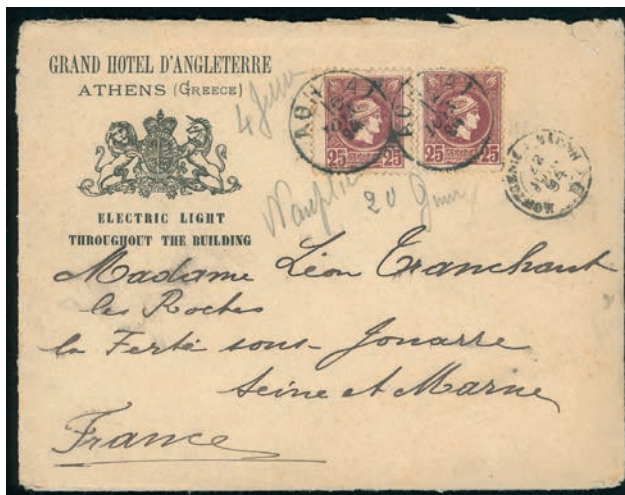 GRAND HOTEL D'ANGLETERRE
ATHENS (GREECE)
ELECTRIC LIGHT
THROUGHOUT THE BUILDING
25 25
25 25
Nauplie
20
Madame Léon Tranchant
les Roches
la Ferté sous-Jouarre
Seine et Marne
France